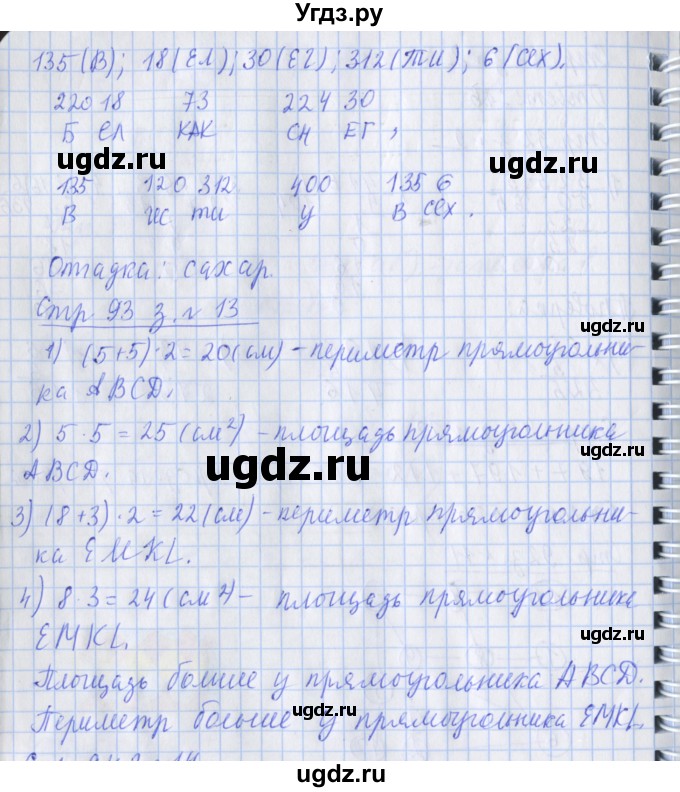 Угдз.ру
135(В); 18(ЕЛ); 30(ЕГ); 312(ТИ); 6(СЕХ).
220 18 73 224 30
Б ЕЛ КАК СН ЕГ,
ugdz.ru ugdz.ru
135 120 312 400 135 6
В ИС ТИ У В СЕХ.
Отгадка: сахар.
Стр 93 з. № 13
ugdz.ru
1) (5+5)·2=20(см) – периметр прямоугольни-
ка ABCD.
2) 5·5=25(см²) – площадь прямоугольника
ABCD.
ugdz.ru ugdz.ru
3) (8+3)·2=22(см) – периметр прямоугольни-
ка EMKL.
4) 8·3=24(см²) – площадь прямоугольника
EMKL.
ugdz.ru
Площадь больше у прямоугольника ABCD.
Периметр больше у прямоугольника EMKL.
ugdz.ru ugdz.ru
ugdz.ru